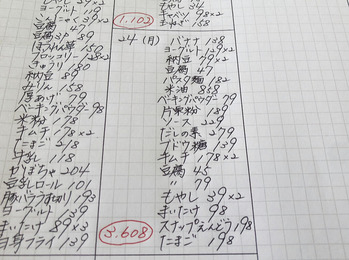 ヨーグルト 139
こんにゃく 39×2
豆腐 47
豆腐3P 89
ほうれん草 159
ブロッコリー 128×2
きゅうり 180
納豆 89
みりん 158
厚あげ 79
ベーキングパウダー 98
米粉 178
キムチ 178×2
たまご 218
牛乳 118
かぼちゃ 204
豆乳ロール 101
豚バラうす切り 193
ヨーグルト 139
まいたけ 89×3
白身フライ 139
1,102
3,608
もやし 34
キャベツ 98×2
158
24 (月) バナナ 138
ヨーグルト 139×2
納豆 79×2
豆腐 47
パスタ麺 182
米油 868
ベーキングパウダー 79
片栗粉 189
ソース 229
だしの素 279
ブドウ糖 139
キムチ 178×2
豆腐 45
〃 79
もやし 39×2
まいたけ 98
スナップえんどう 198
たまご 198